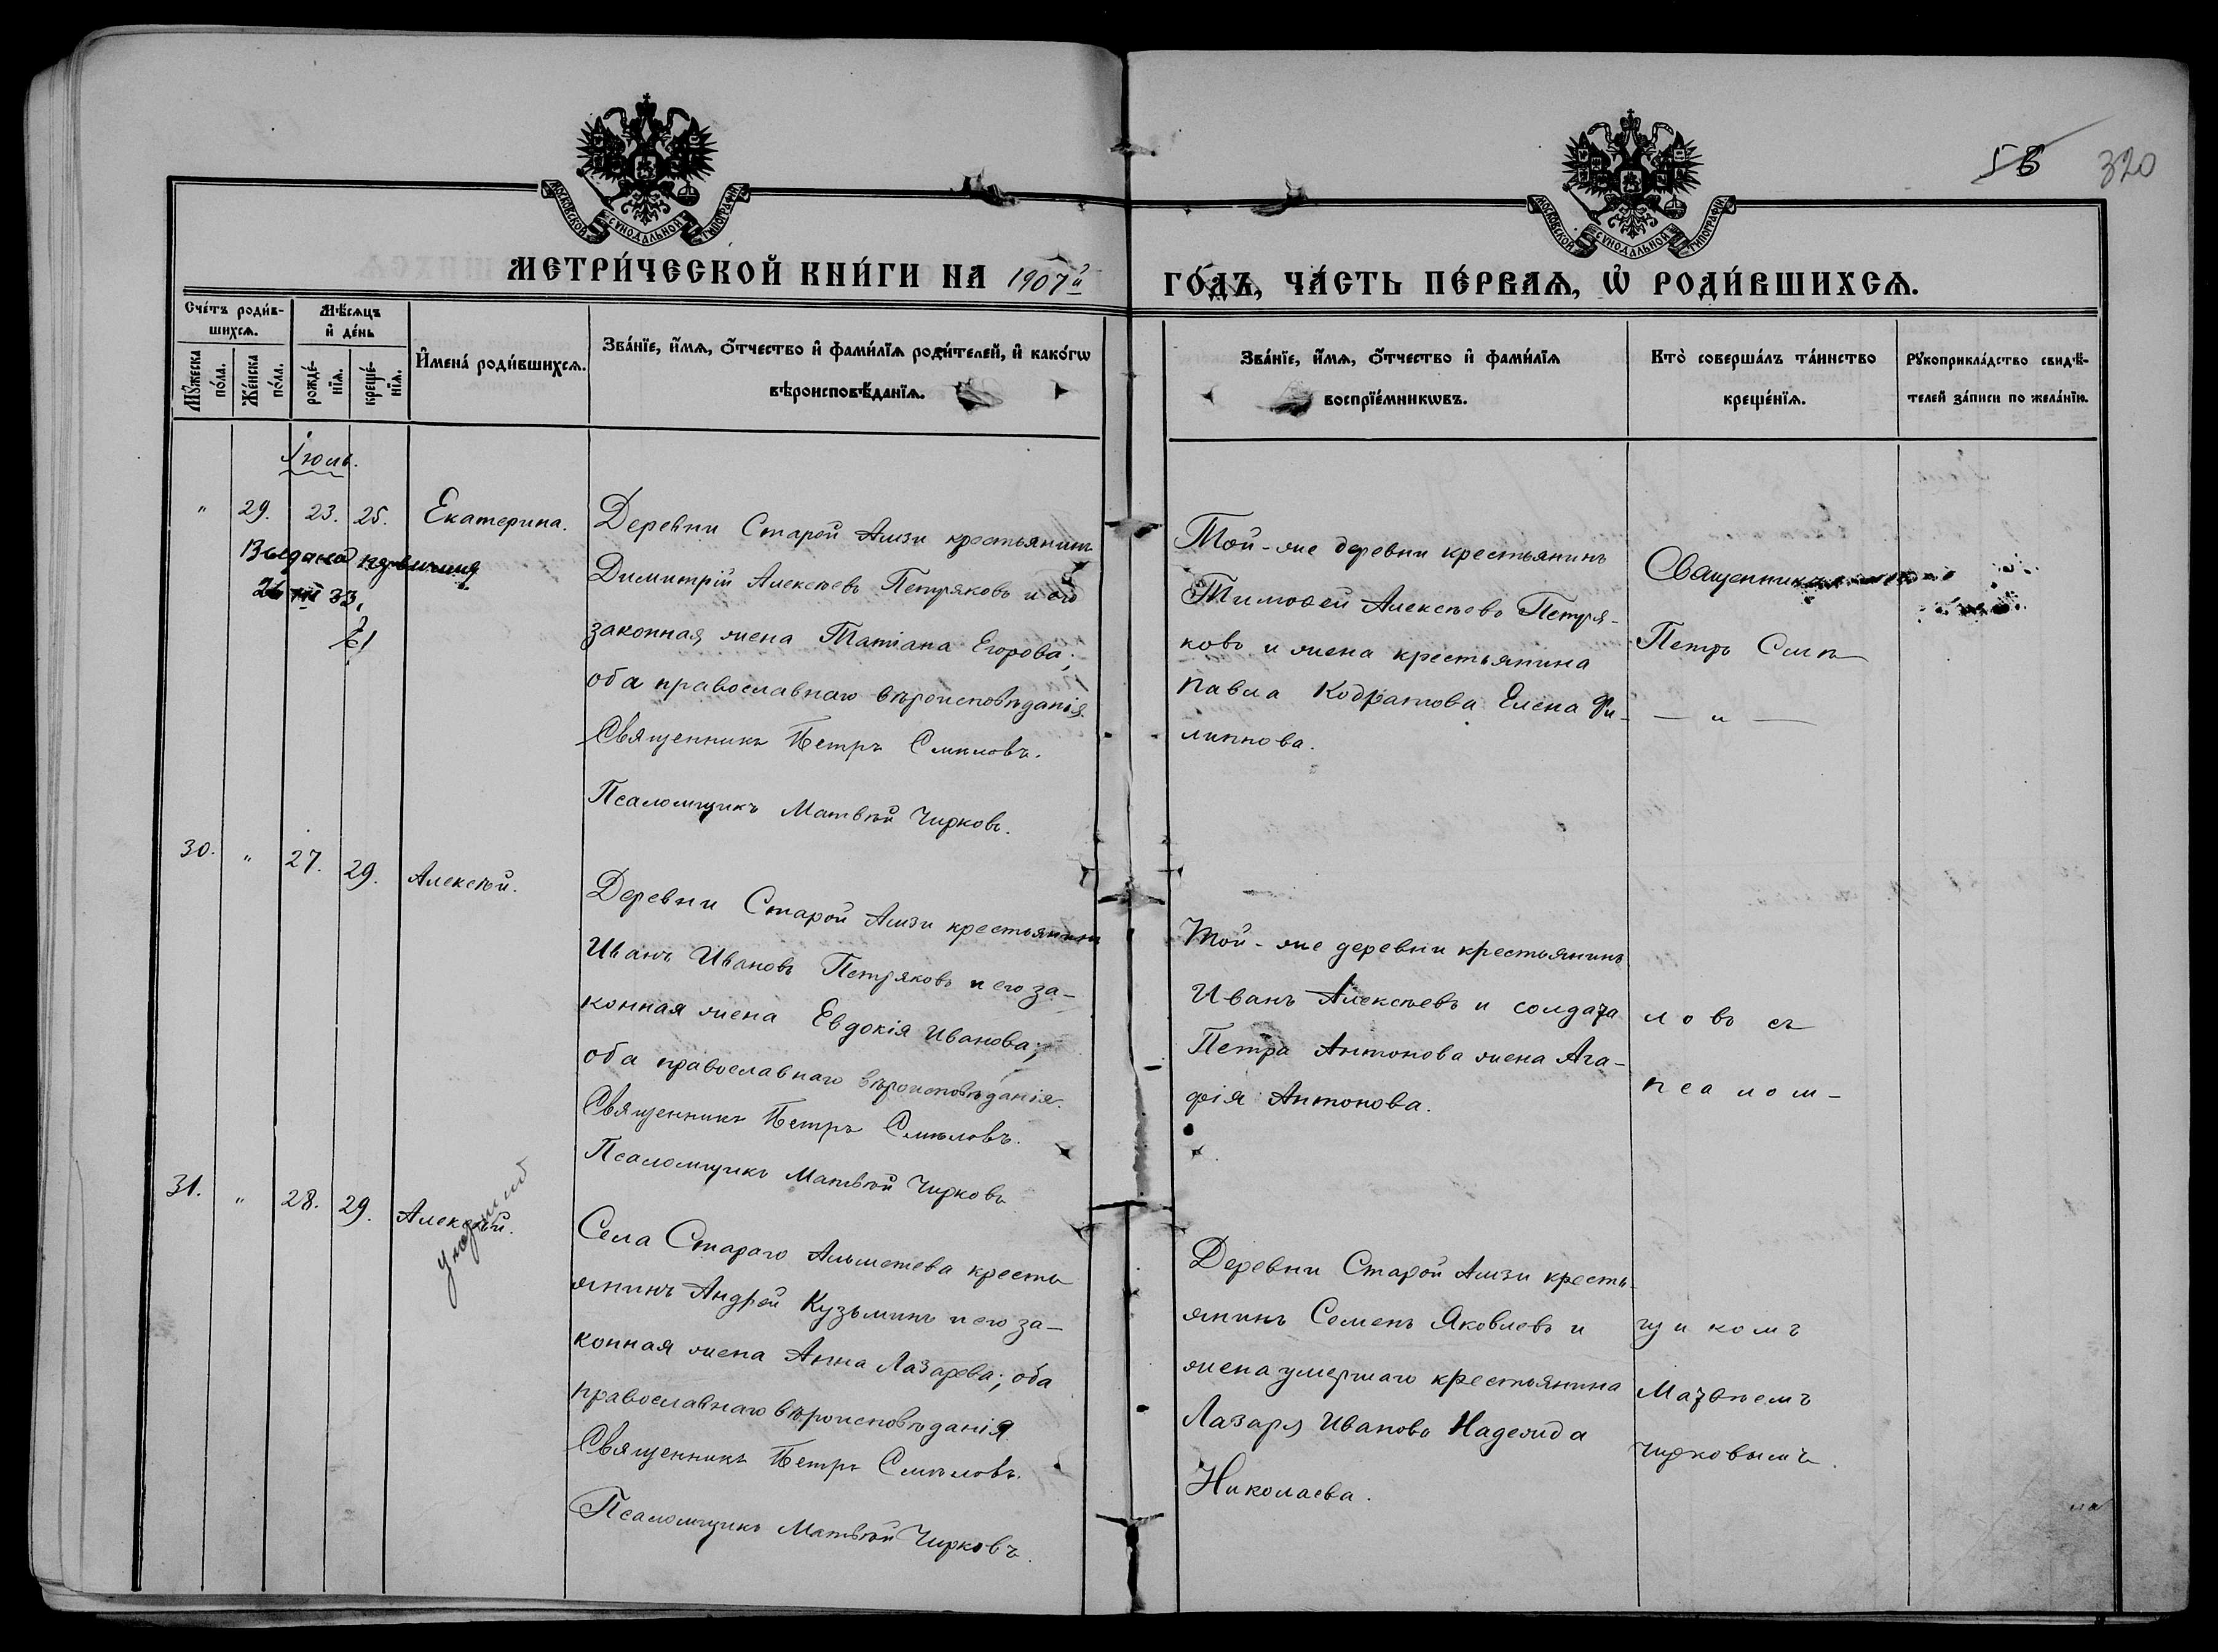 58 320
МОСКОВСКОЙ СѴНОДАЛЬНОЙ ТИПОГРАФІИ
МОСКОВСКОЙ СѴНОДАЛЬНОЙ ТИПОГРАФІИ
МЕТРИ́ЧЕСКОЙ КНИ́ГИ НА 1907й ГО́ДЪ, ЧА́СТЬ ПЕ́РВАѦ, Ѡ҆ РОДИ́ВШИХСѦ.
Сче́тъ роди́в-
шихсѧ.
Мꙋ́жеска
по́ла.
Же́нска
по́ла.
Мѣ́сѧцъ
и҆ де́нь
рожде́-
нїѧ.
креще́-
нїѧ.
И҆мена̀ роди́вшихсѧ.
Зва́нїе, и҆́мѧ, ѻ҆́тчество и҆ фами́лїѧ роди́телей, и҆ како́гѡ
вѣроисповѣ́данїѧ.
Зва́нїе, и҆́мѧ, ѻ҆́тчество и҆ фами́лїѧ
воспрїе́мникѡвъ.
Кто̀ соверша́лъ та́инство
креще́нїѧ.
Рꙋкоприкла́дство свидѣ́-
телей за́писи по жела́нїю.
Іюль.
" 29. 23. 25. Екатерина.
26 VIII 33.
Деревни Старой Амзи крестьянинъ
Димитрій Алексѣевъ Петряковъ и его
законная жена Татіана Егорова;
оба православнаго вѣроисповѣданія.
Священникъ Петръ Смѣловъ.
Псаломщикъ Матвѣй Чирковъ.
Той-же деревни крестьянинъ
Тимоѳей Алексѣевъ Петря-
ковъ и жена крестьянина
Павла Кодратова Елена Фи-
липпова.
Священникъ
Петръ Смѣ
— и —
30. " 27. 29. Алексѣй.
Деревни Старой Амзи крестьянинъ
Иванъ Ивановъ Петряковъ и его за-
конная жена Евдокія Иванова;
оба православнаго вѣроисповѣданія.
Священникъ Петръ Смѣловъ.
Псаломщикъ Матвѣй Чирковъ
Той-же деревни крестьянинъ
Иванъ Алексѣевъ и солдата
Петра Антонова жена Ага-
фія Антонова.
ловъ съ
псалом-
31. " 28. 29. Алексѣй.
умерший
Села Стараго Альметева кресть
янинъ Андрей Кузьминъ и его за-
конная жена Анна Лазарева; оба
православнаго вѣроисповѣданія.
Священникъ Петръ Смѣловъ.
Псаломщикъ Матвѣй Чирковъ.
Деревни Старой Амзи кресть-
янинъ Семенъ Яковлевъ и
жена умершаго крестьянина
Лазаря Иванова Надежда
Николаева.
щикомъ
Матвѣемъ
Чирковымъ.